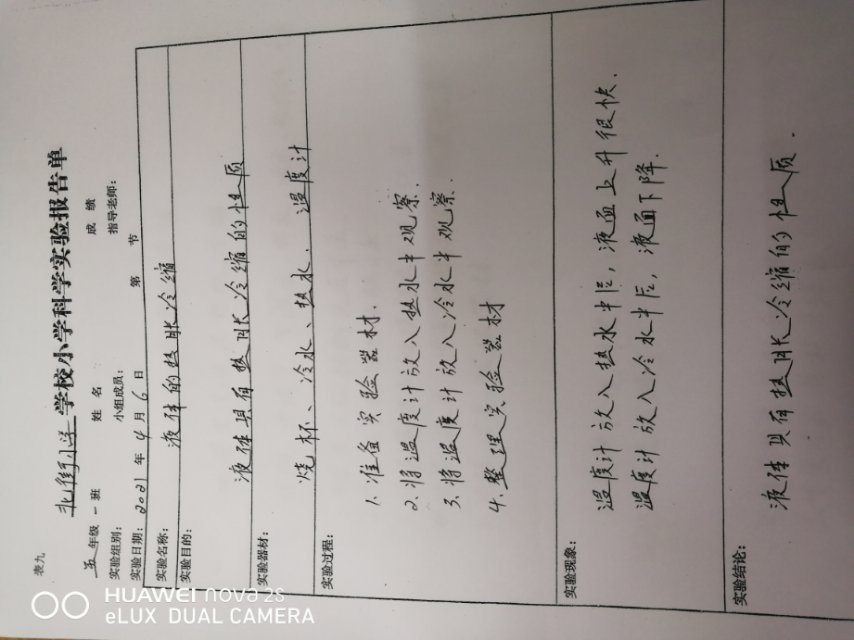 表九
北街小学学校小学科学实验报告单
五年级 一 班 姓 名 成 绩
实验组别： 小组成员： 指导老师：
实验日期：2021 年 4 月 6 日 第 节
实验名称： 液体的热胀冷缩
实验目的：
液体具有热胀冷缩的性质
实验器材：
烧杯、冷水、热水、温度计
实验过程：
1. 准备实验器材.
2. 将温度计放入热水中观察.
3. 将温度计放入冷水中观察.
4. 整理实验器材
实验现象：
温度计放入热水中后，液面上升很快.
温度计放入冷水中后，液面下降.
实验结论：
液体具有热胀冷缩的性质.
HUAWEI nova 2S
eLUX DUAL CAMERA